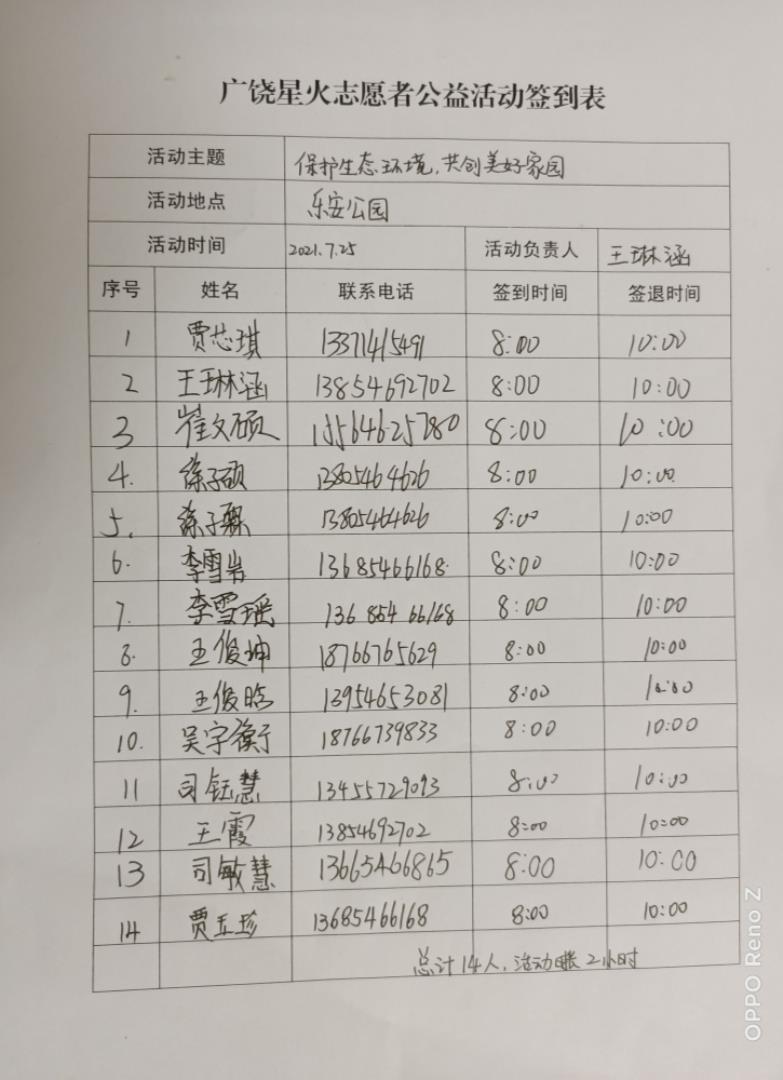 广饶星火志愿者公益活动签到表
活动主题 保护生态环境,共创美好家园
活动地点 乐安公园
活动时间 2021.7.25 活动负责人 王琳涵
序号 姓名 联系电话 签到时间 签退时间
1 贾芯琪 13371415491 8:00 10:00
2 王琳涵 13854692702 8:00 10:00
3 崔文硕 15564625780 8:00 10:00
4. 徐子硕 13805464626 8:00 10:00
5. 徐子霖 13805464626 8:00 10:00
6. 李雪岩 13685466168. 8:00 10:00
7. 李雪瑶 13685466168 8:00 10:00
8. 王俊坤 18766765629 8:00 10:00
9. 王俊晗 13954653081 8:00 10:00
10. 吴宇衡 18766739833 8:00 10:00
11 司钰慧 13455729093 8:00 10:00
12 王霞 13854692702 8:00 10:00
13 司敏慧 13665466865 8:00 10:00
14 贾玉珍 13685466168 8:00 10:00
总计14人,活动 2小时
OPPO Reno Z